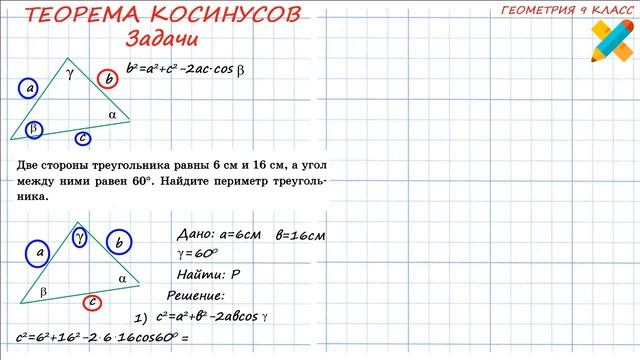 ТЕОРЕМА КОСИНУСОВ
Задачи
ГЕОМЕТРИЯ 9 КЛАСС
b²=a²+c²-2ac·cos β
γ
a
b
α
β
c
Две стороны треугольника равны 6 см и 16 см, а угол
между ними равен 60°. Найдите периметр треуголь-
ника.
γ
a
b
α
β
c
Дано: a=6см в=16см
γ=60°
Найти: P
Решение:
1) c²=a²+в²-2авcos γ
c²=6²+16²-2·6·16cos60° =